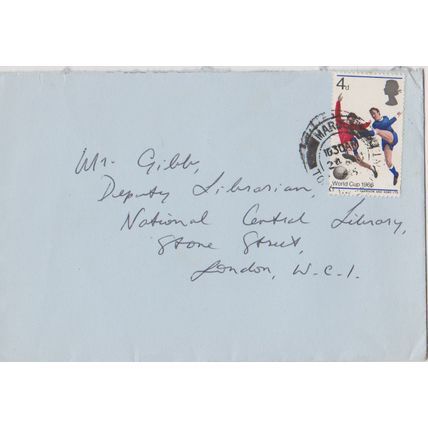 4d
World Cup 1966
Mr. Gibb,
Deputy Librarian,
National Central Library,
Store Street,
London, W.C.1.